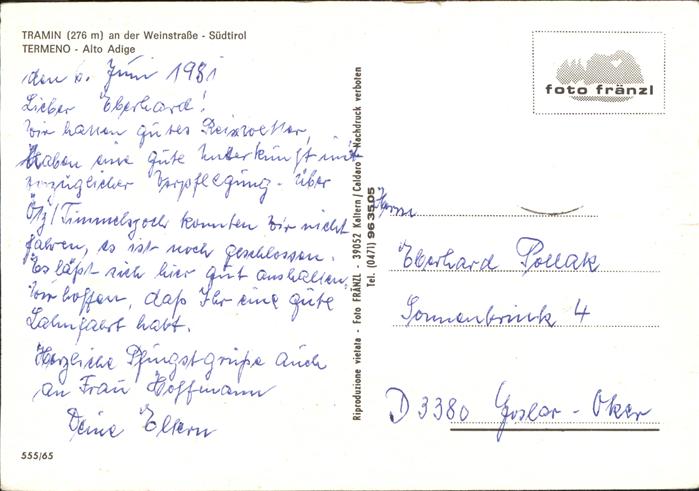 TRAMIN (276 m) an der Weinstraße - Südtirol
TERMENO - Alto Adige
den 6. Juni 1981
Lieber Eberhard!
Wir hatten gutes Reisewetter,
haben eine gute Unterkunft mit
vorzüglicher Verpflegung. Über
Ötz/Timmelsjoch konnten wir nicht
fahren, es ist noch geschlossen.
Es läßt sich hier gut aushalten.
Wir hoffen, daß Ihr eine gute
Lahnfahrt habt.
Herzliche Pfingstgrüße auch
an Frau Hoffmann
Deine Eltern
555/65
Riproduzione vietata - Foto FRÄNZL - 39052 Kaltern/Caldaro - Nachdruck verboten
Tel. (0471) 963505
foto fränzl
Herrn
Eberhard Pollak
Sonnenbrink 4
D 3380 Goslar - Oker